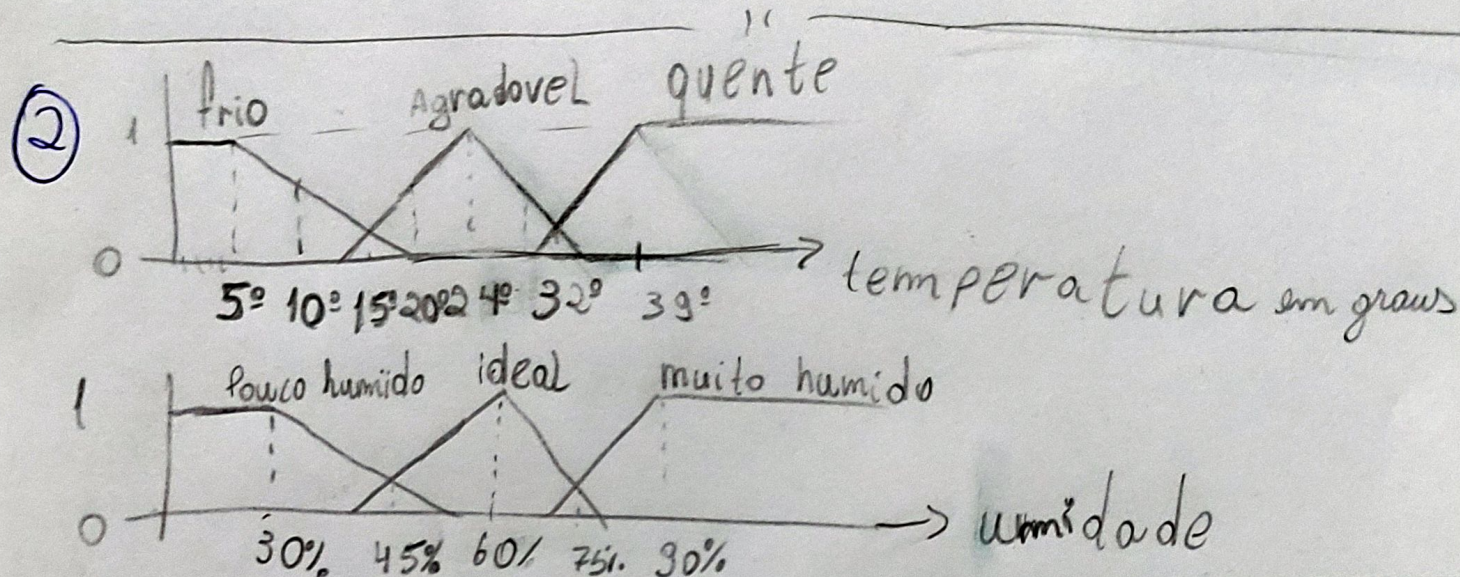 2
frio Agradovel quente
1
0
5º 10º 15º 20º 24º 32º 39º
temperatura em graus
Pouco humido ideal muito humido
1
0
30% 45% 60% 75% 90%
umidade